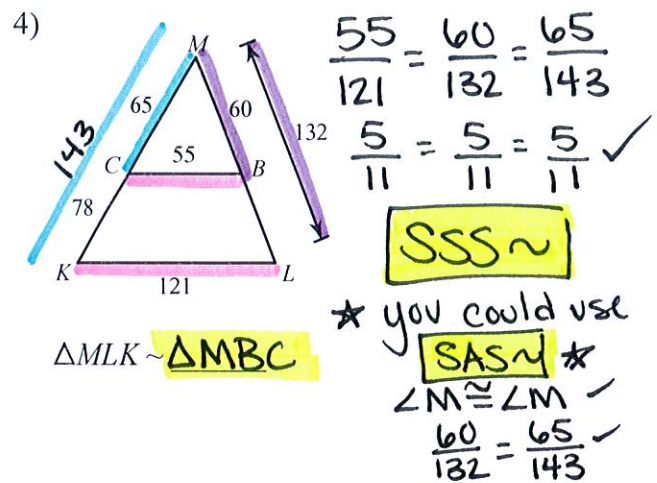 4)
M
65
60
143
132
55
C
B
78
K
L
121
ΔMLK ~ ΔMBC
55/121 = 60/132 = 65/143
5/11 = 5/11 = 5/11 ✓
SSS~
★ you could use
SAS~ ★
∠M ≅ ∠M ✓
60/132 = 65/143 ✓